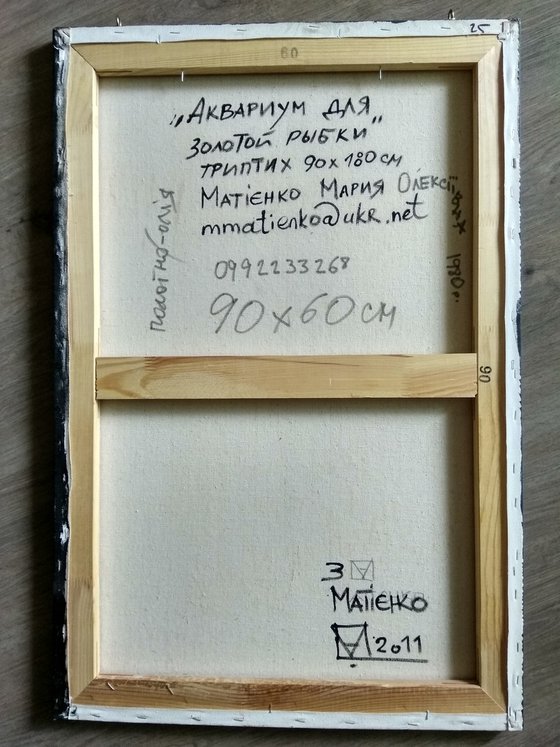 25
60
„Аквариум для„
золотой рыбки
триптих 90х180см
Матієнко Мария Олексіївна
mmatienko@ukr.net
0992233268
90х60см
полотно-олія
1980г.
90
3
Матієнко
2011